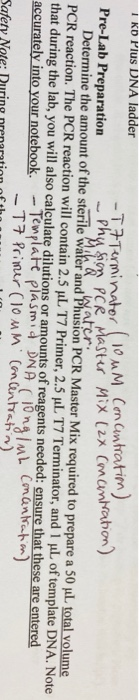 1 kb Plus DNA ladder
- T7 Terminator (10 µM Concentration)
Pre-Lab Preparation
- phusion PCR Master Mix (2x Concentration)
Determine the amount of the sterile water and Phusion PCR Master Mix required to prepare a 50 µL total volume
Milli Q water
PCR reaction. The PCR reaction will contain 2.5 µL T7 Primer, 2.5 µL T7 Terminator, and 1 µL of template DNA. Note
that during the lab, you will also calculate dilutions or amounts of reagents needed; ensure that these are entered
accurately into your notebook.
- Template plasmid DNA (10ng/µL Concentration)
- T7 Primer (10 µM Concentration)
Safety Note: During preparation of the